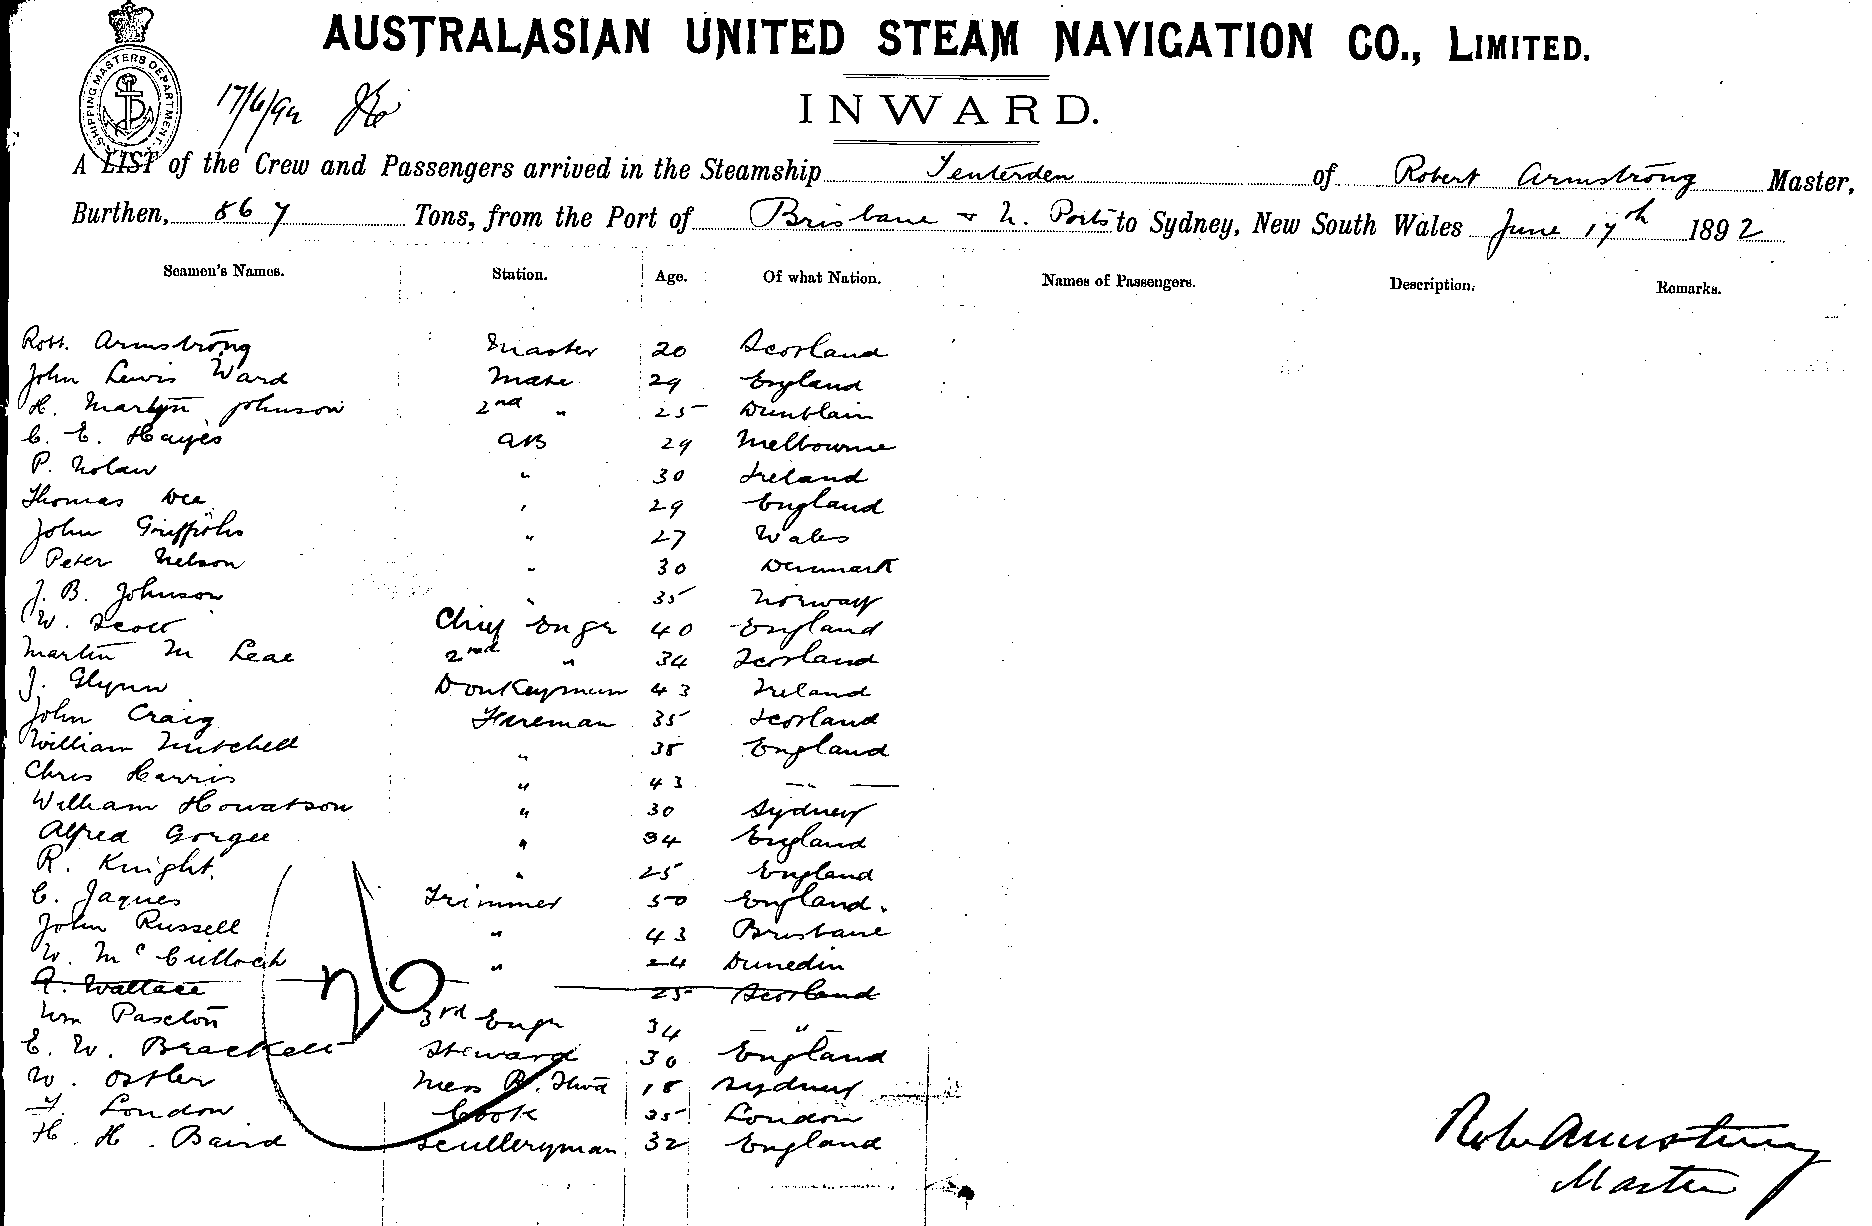 AUSTRALASIAN UNITED STEAM NAVIGATION CO., LIMITED.
SHIPPING MASTERS DEPARTMENT
17/6/92
INWARD.
A LIST of the Crew and Passengers arrived in the Steamship Tenterden of Robert Armstrong Master,
Burthen, 867 Tons, from the Port of Brisbane & N. Ports to Sydney, New South Wales June 17th 1892
Seamen's Names. Station. Age. Of what Nation. Names of Passengers. Description. Remarks.
Robt. Armstrong Master 20 Scotland
John Lewis Ward Mate 29 England
H. Martyn Johnson 2nd " 25 Dunblain
C. E. Hayes AB 29 Melbourne
P. Nolan " 30 Ireland
Thomas Dee " 29 England
John Griffiths " 27 Wales
Peter Nelson " 30 Denmark
J. B. Johnson " 35 Norway
W. Scott Chief Engr 40 England
Martin M Leae 2nd " 34 Scotland
J. Glynn Donkeyman 43 Ireland
John Craig Fireman 35 Scotland
William Mitchell " 38 England
Chris Harris " 43 — " —
William Howatson " 30 Sydney
Alfred Gorgee " 34 England
R. Knight. " 25 England
C. Jaques Trimmer 50 England.
John Russell " 43 Brisbane
W. McCulloch " 24 Dunedin
A. Wallace 25 Scotland
Wm Paxton 3rd Engr 34 — " —
E. W. Brackett Steward 30 England
W. Ostler Mess R. Stwd 18 Sydney
F. London Cook 35 London
H. H. Baird Sculleryman 32 England
26
Robt Armstrong
Master